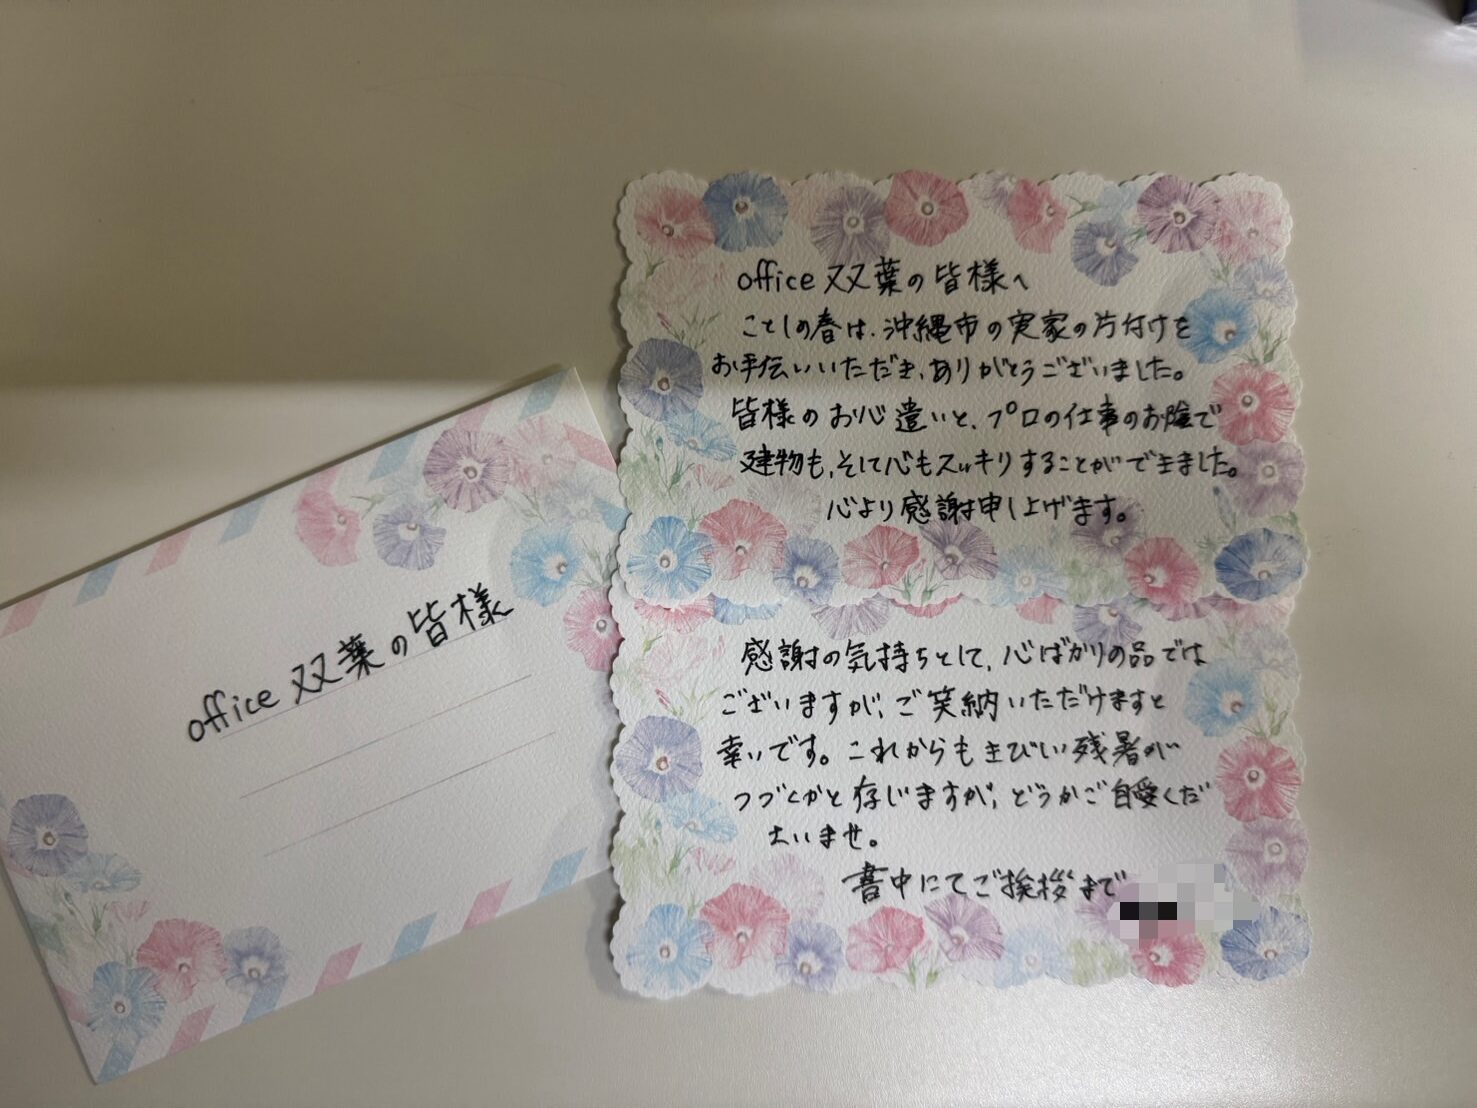 office 双葉の皆様
office 双葉の皆様へ
ことしの春は、沖縄市の実家の片付けを
お手伝いいただき、ありがとうございました。
皆様のお心遣いと、プロの仕事のお陰で
建物も、そして心もスッキリすることができました。
心より感謝申し上げます。
感謝の気持ちとして、心ばかりの品では
ございますが、ご笑納いただけますと
幸いです。これからもきびしい残暑が
つづくかと存じますが、どうかご自愛くだ
さいませ。
書中にてご挨拶まで